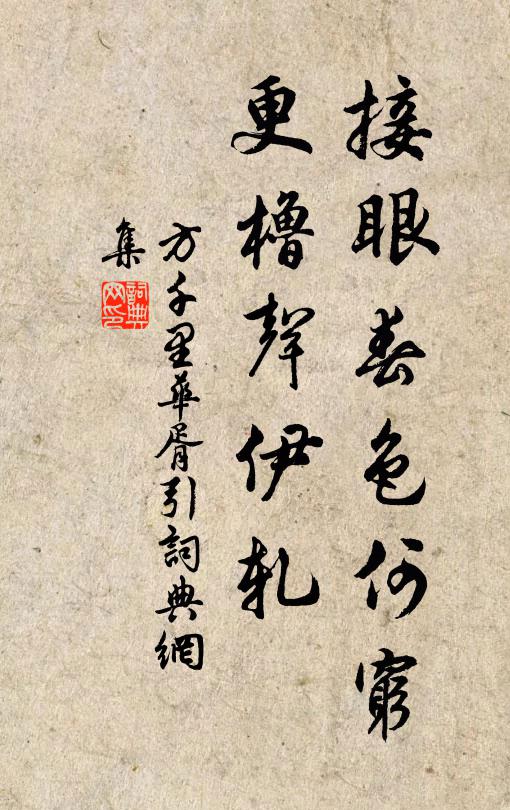 接眼春色何窮
更櫓聲伊軋
方千里華胥引詞典網
集
詞典
网印